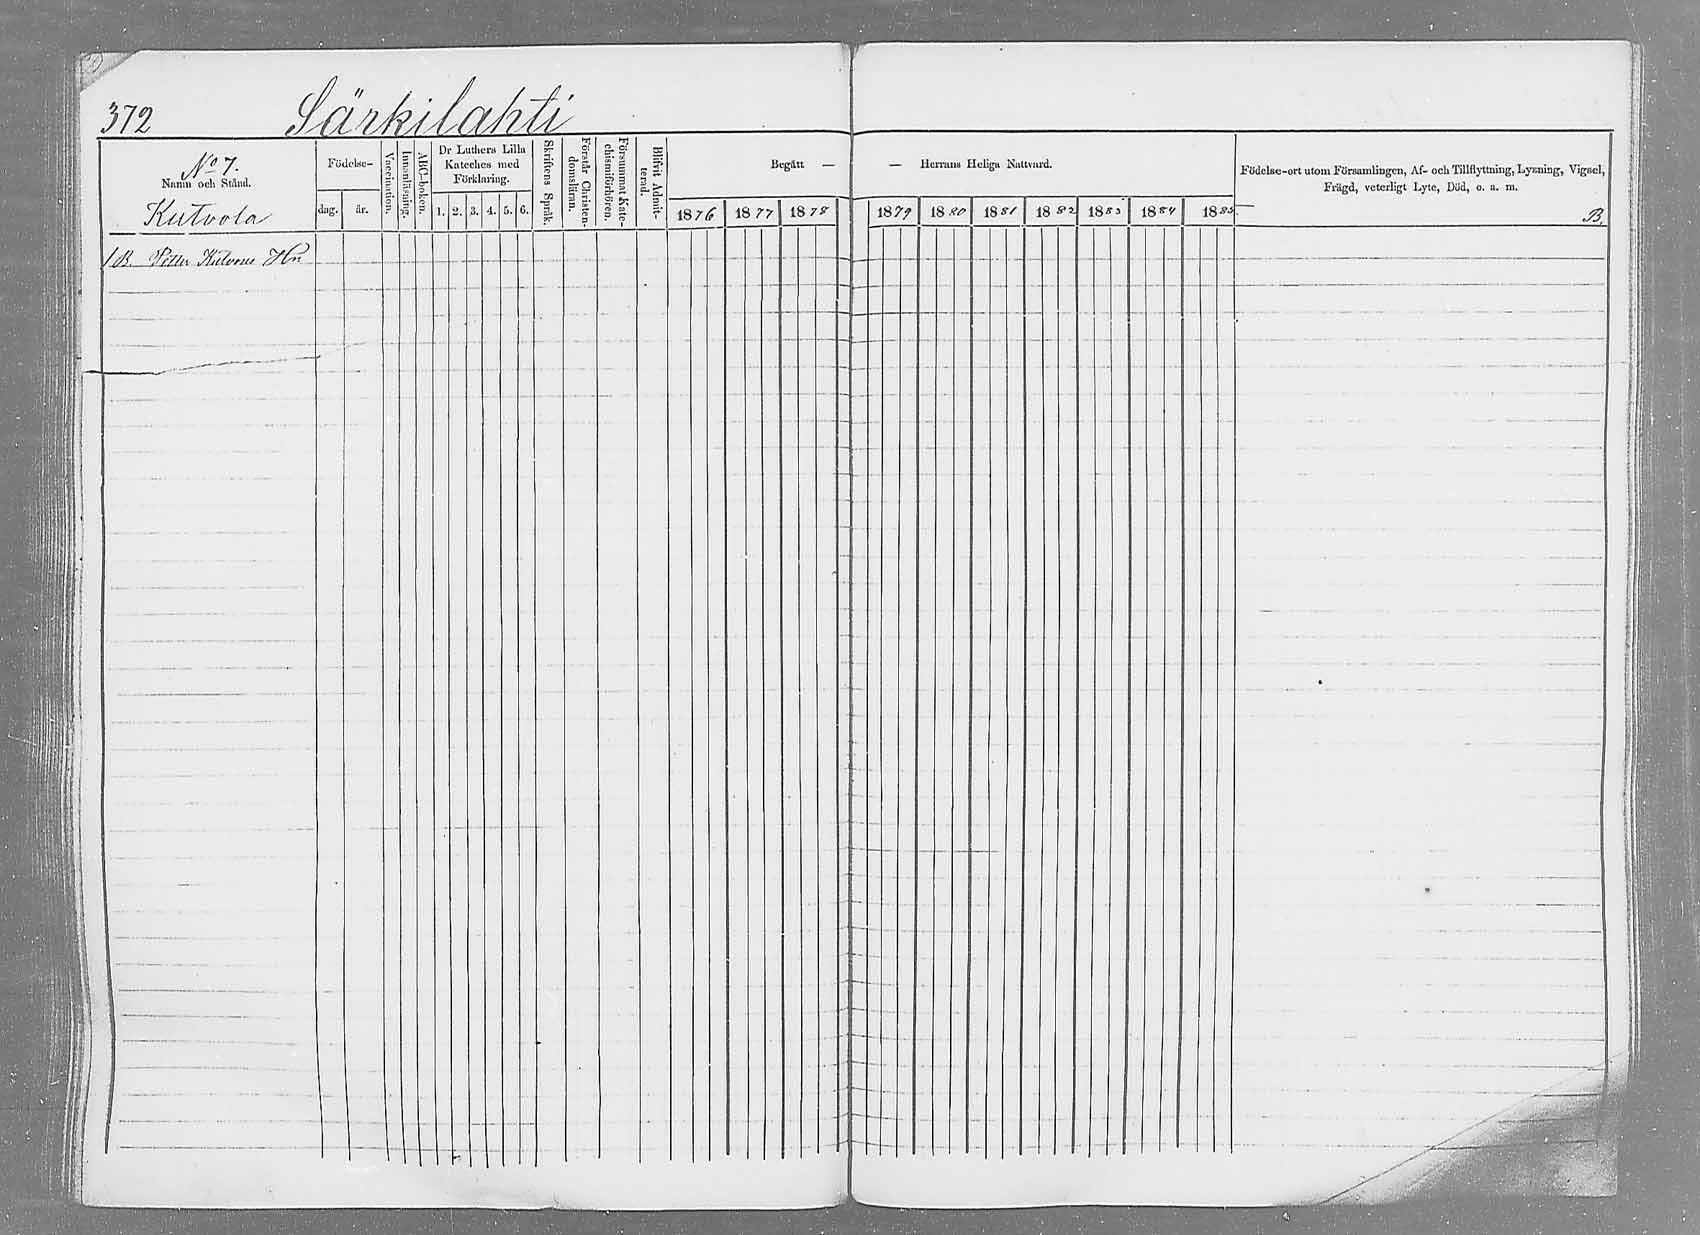 372 Särkilahti
No 7.
Namn och Stånd.
Kutvola
Födelse-
dag. år.
Vaccination.
Innanläsning.
ABC-boken.
Dr Luthers Lilla
Kateches med
Förklaring.
1. 2. 3. 4. 5. 6.
Skriftens Språk.
Förstår Christen-
domsläran.
Försummat Kate-
chismiförhören.
Blifvit Admit-
terad.
Begått — — Herrans Heliga Nattvard.
1876 1877 1878 1879 1880 1881 1882 1883 1884 1885
Födelse-ort utom Församlingen, Af- och Tillflyttning, Lysning, Vigsel,
Frägd, veterligt Lyte, Död, o. a. m.
B.
1 B. Petter Kutvonen Hn